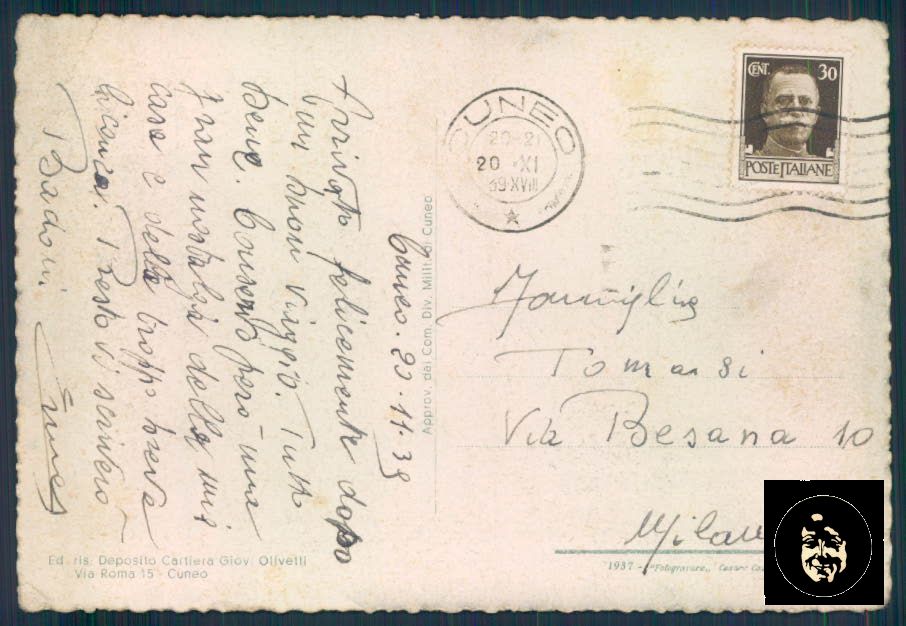 Cuneo. 20.11.39
Arrivato felicemente dopo
un buon viaggio. Tutto
bene. Conservo però una
gran nostalgia della mia
casa e della troppo breve
licenza. Presto vi scriverò
Bacioni
CUNEO
20-21
20 XI
39·XVIII
CENT. 30
POSTE ITALIANE
Famiglia
Tomasi
Via Besana 10
Milano
Approv. dal Com. Div. Milit. di Cuneo
Ed. ris. Deposito Cartiera Giov. Olivetti
Via Roma 15 - Cuneo
1937 - "Fotogravure" Cesare